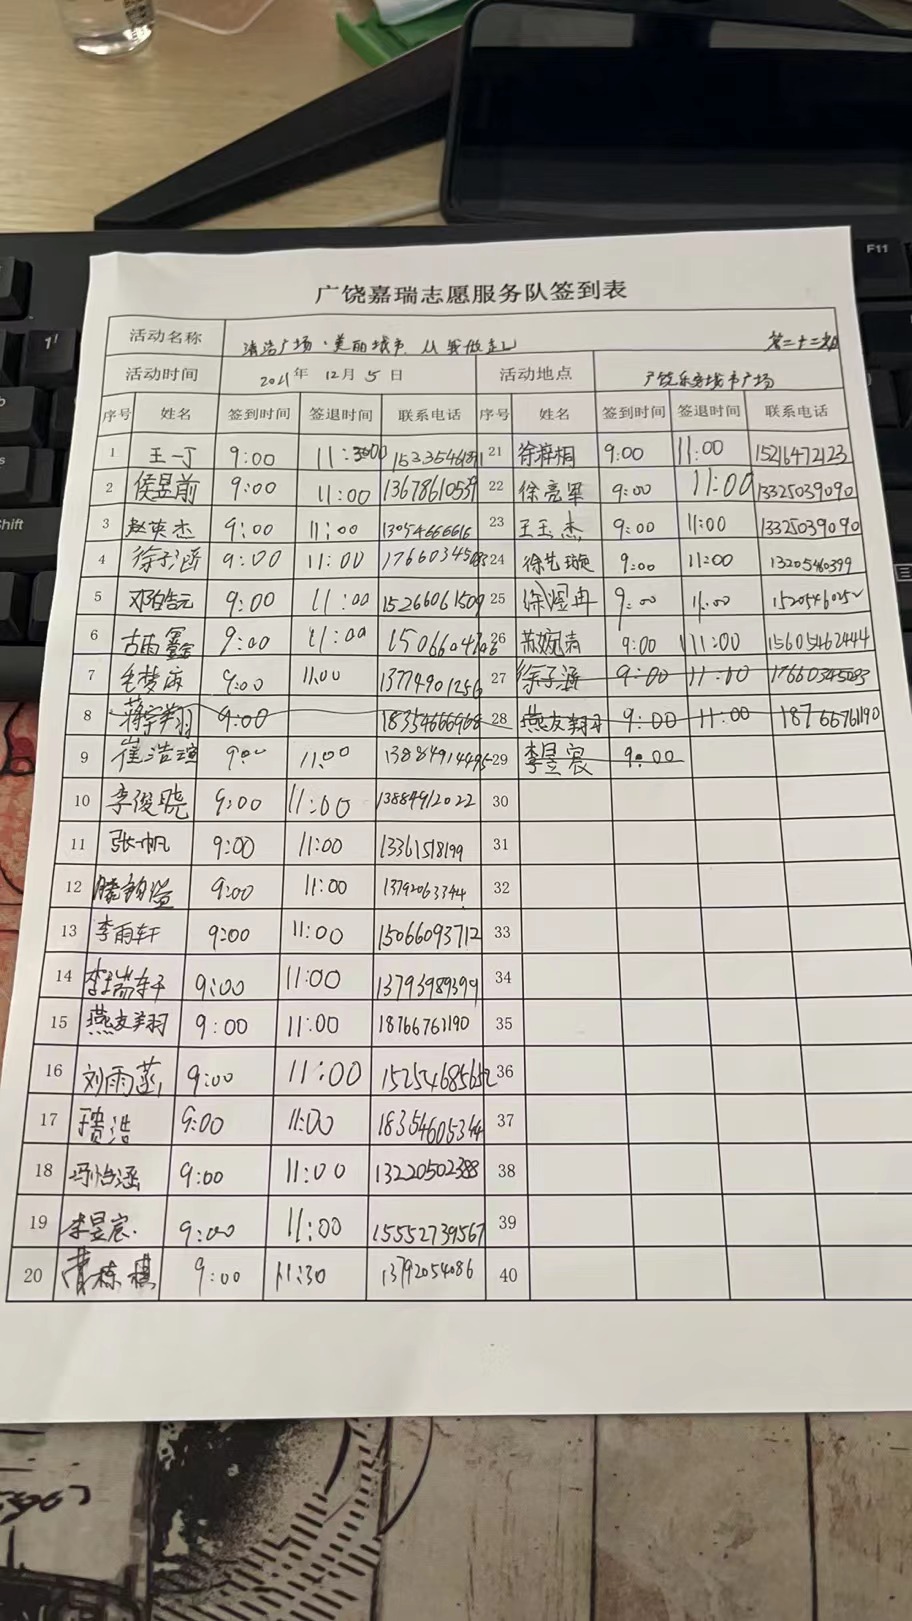 广饶嘉瑞志愿服务队签到表
活动名称 清洁广场·美丽城市 从我做起 第二十二期
活动时间 2021年 12月 5日 活动地点 广饶乐安城市广场
序号 姓名 签到时间 签退时间 联系电话 序号 姓名 签到时间 签退时间 联系电话
1 王一丁 9:00 11:00 21 徐梓桐 9:00 11:00 15216472123
2 侯昱前 9:00 11:00 13678610539 22 徐亮军 9:00 11:00 13325039090
3 赵英杰 9:00 11:00 13054666616 23 王玉杰 9:00 11:00 13325039090
4 徐子涵 9:00 11:00 17660345083 24 徐艺璇 9:00 11:00 13205460399
5 邓皓元 9:00 11:00 15266061509 25 徐煜冉 9:00 11:00 15205460152
6 古雨鑫 9:00 11:00 26 苏婉清 9:00 11:00 15605462444
7 毛梦麻 9:00 11:00 13774901256 27 徐子涵 9:00 11:00 17660345083
8 蒋宇翔 9:00 18354666968 28 燕友翔 9:00 11:00 18766761190
9 崔浩瑄 9:00 11:00 13884914495 29 李昱宸 9:00
10 李俊晓 9:00 11:00 13884912022 30
11 张一帆 9:00 11:00 13361518199 31
12 9:00 11:00 13792063344 32
13 李雨轩 9:00 11:00 15066093712 33
14 李瑞轩 9:00 11:00 13793989399 34
15 燕友翔 9:00 11:00 18766761190 35
16 刘雨菡 9:00 11:00 15254685652 36
17 浩 9:00 11:00 18354605344 37
18 冯怡涵 9:00 11:00 13220502388 38
19 李昱宸 9:00 11:00 15552739567 39
20 曹栋棋 9:00 11:30 13792054086 40
F11
Shift